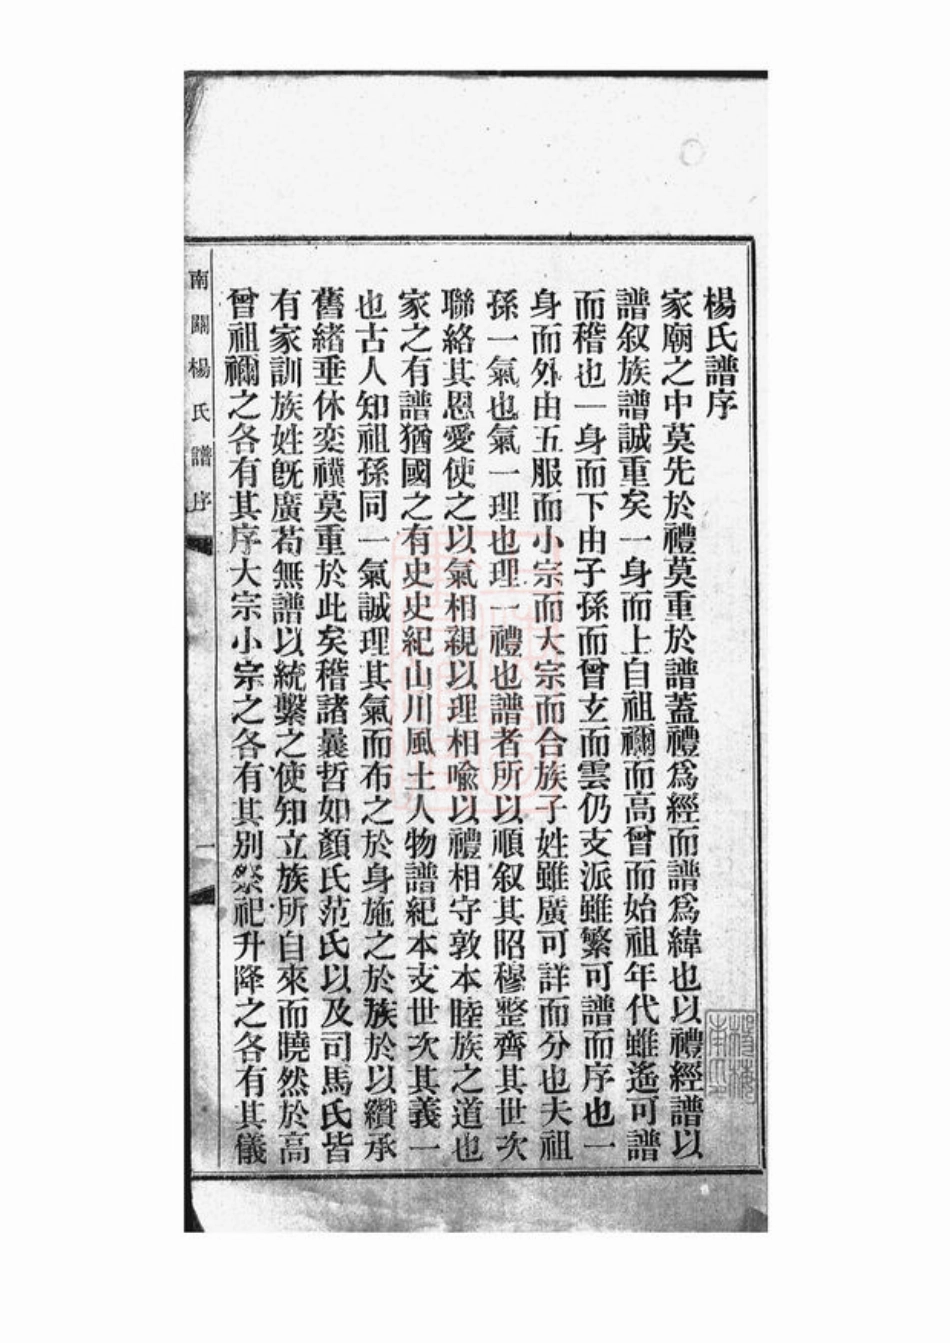 楊氏譜序
家廟之中莫先於禮莫重於譜蓋禮爲經而譜爲緯也以禮經譜以
譜叙族譜誠重矣一身而上自祖禰而高曾而始祖年代雖遙可譜
而稽也一身而下由子孫而曾玄而雲仍支派雖繁可譜而序也一
身而外由五服而小宗而大宗而合族子姓雖廣可詳而分也夫祖
孫一氣也氣一理也理一禮也譜者所以順叙其昭穆整齊其世次
聯絡其恩愛使之以氣相親以理相喩以禮相守敦本睦族之道也
家之有譜猶國之有史史紀山川風土人物譜紀本支世次其義一
也古人知祖孫同一氣誠理其氣而布之於身施之於族於以纘承
舊緒垂休奕禩莫重於此矣稽諸曩哲如顏氏范氏以及司馬氏皆
有家訓族姓旣廣苟無譜以統繫之使知立族所自來而曉然於高
曾祖禰之各有其序大宗小宗之各有其别祭祀升降之各有其儀
南關楊氏譜序
一